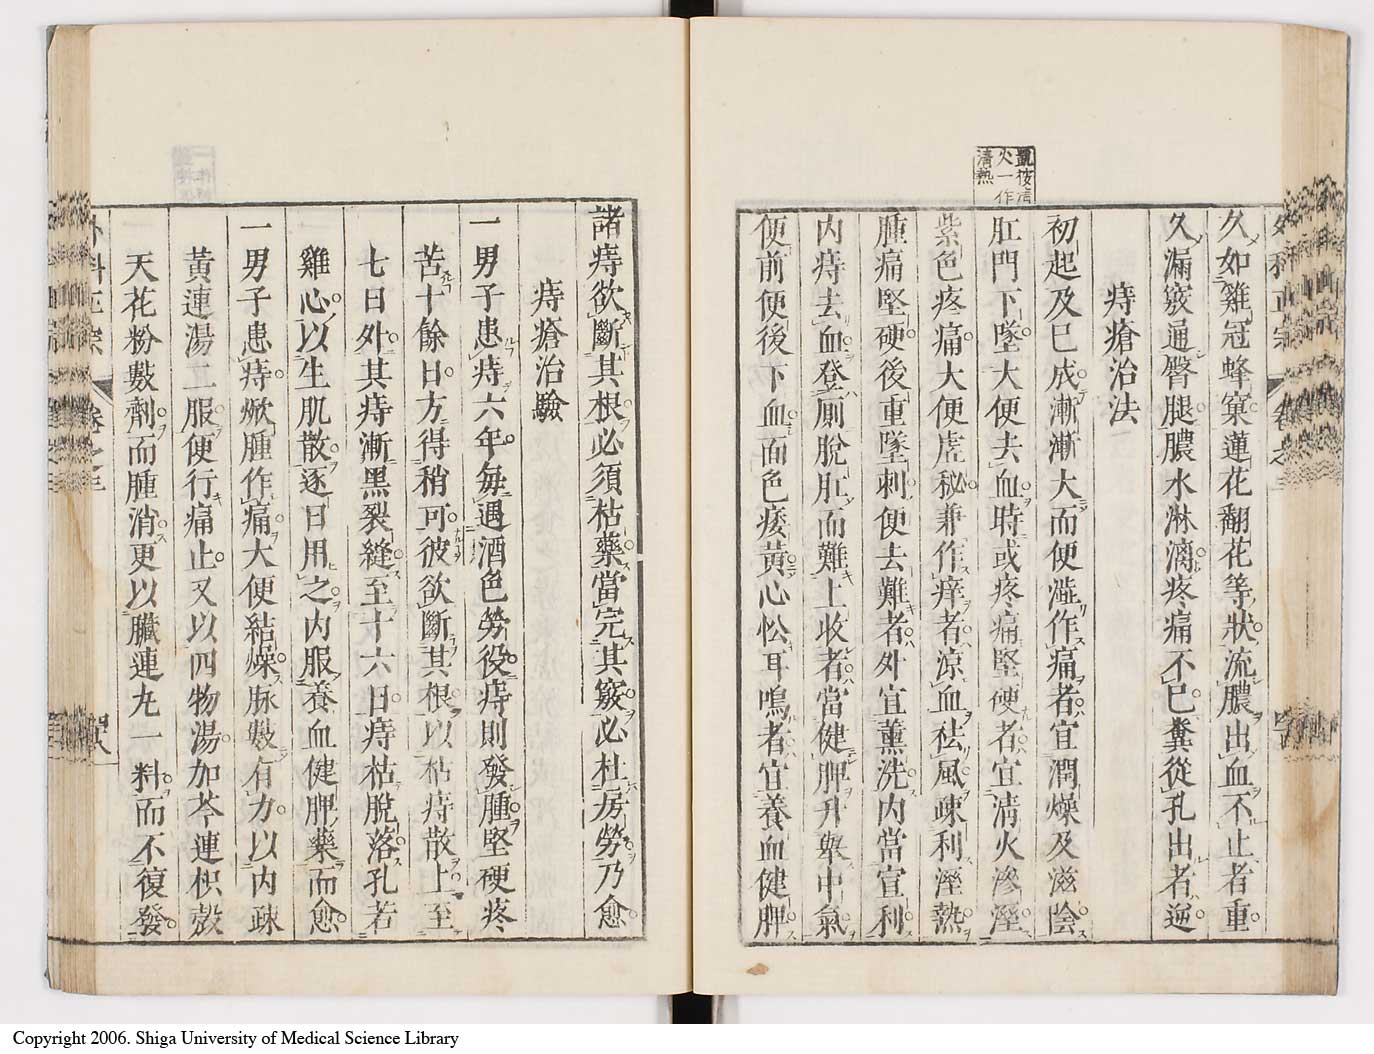 凱按清
火一作
清熱
外科正宗 卷之三
久如雞冠蜂窠蓮花翻花等狀流膿出血不止者重
久漏竅通臀腿膿水淋漓疼痛不已糞從孔出者逆
痔瘡治法
初起及已成漸漸大而便澁作痛者宜潤燥及滋陰
肛門下墜大便去血時或疼痛堅硬者宜清火滲溼
紫色疼痛大便虛秘兼作痒者涼血祛風疎利溼熱
腫痛堅硬後重墜刺便去難者外宜薰洗內當宣利
內痔去血登厠脫肛而難上收者當健脾升舉中氣
便前便後下血面色痿黃心忪耳鳴者宜養血健脾
諸痔欲斷其根必須枯藥當完其竅必杜房勞乃愈
痔瘡治驗
一男子患痔六年每遇酒色勞役痔則發腫堅硬疼
苦十餘日方得稍可彼欲斷其根以枯痔散上至
七日外其痔漸黑裂縫至十六日痔枯脫落孔若
雞心以生肌散逐日用之內服養血健脾藥而愈
一男子患痔焮腫作痛大便結燥脉數有力以內疎
黃連湯二服便行痛止又以四物湯加芩連枳殼
天花粉數劑而腫消更以臟連丸一料而不復發
外科正宗 卷之三
Copyright 2006. Shiga University of Medical Science Library